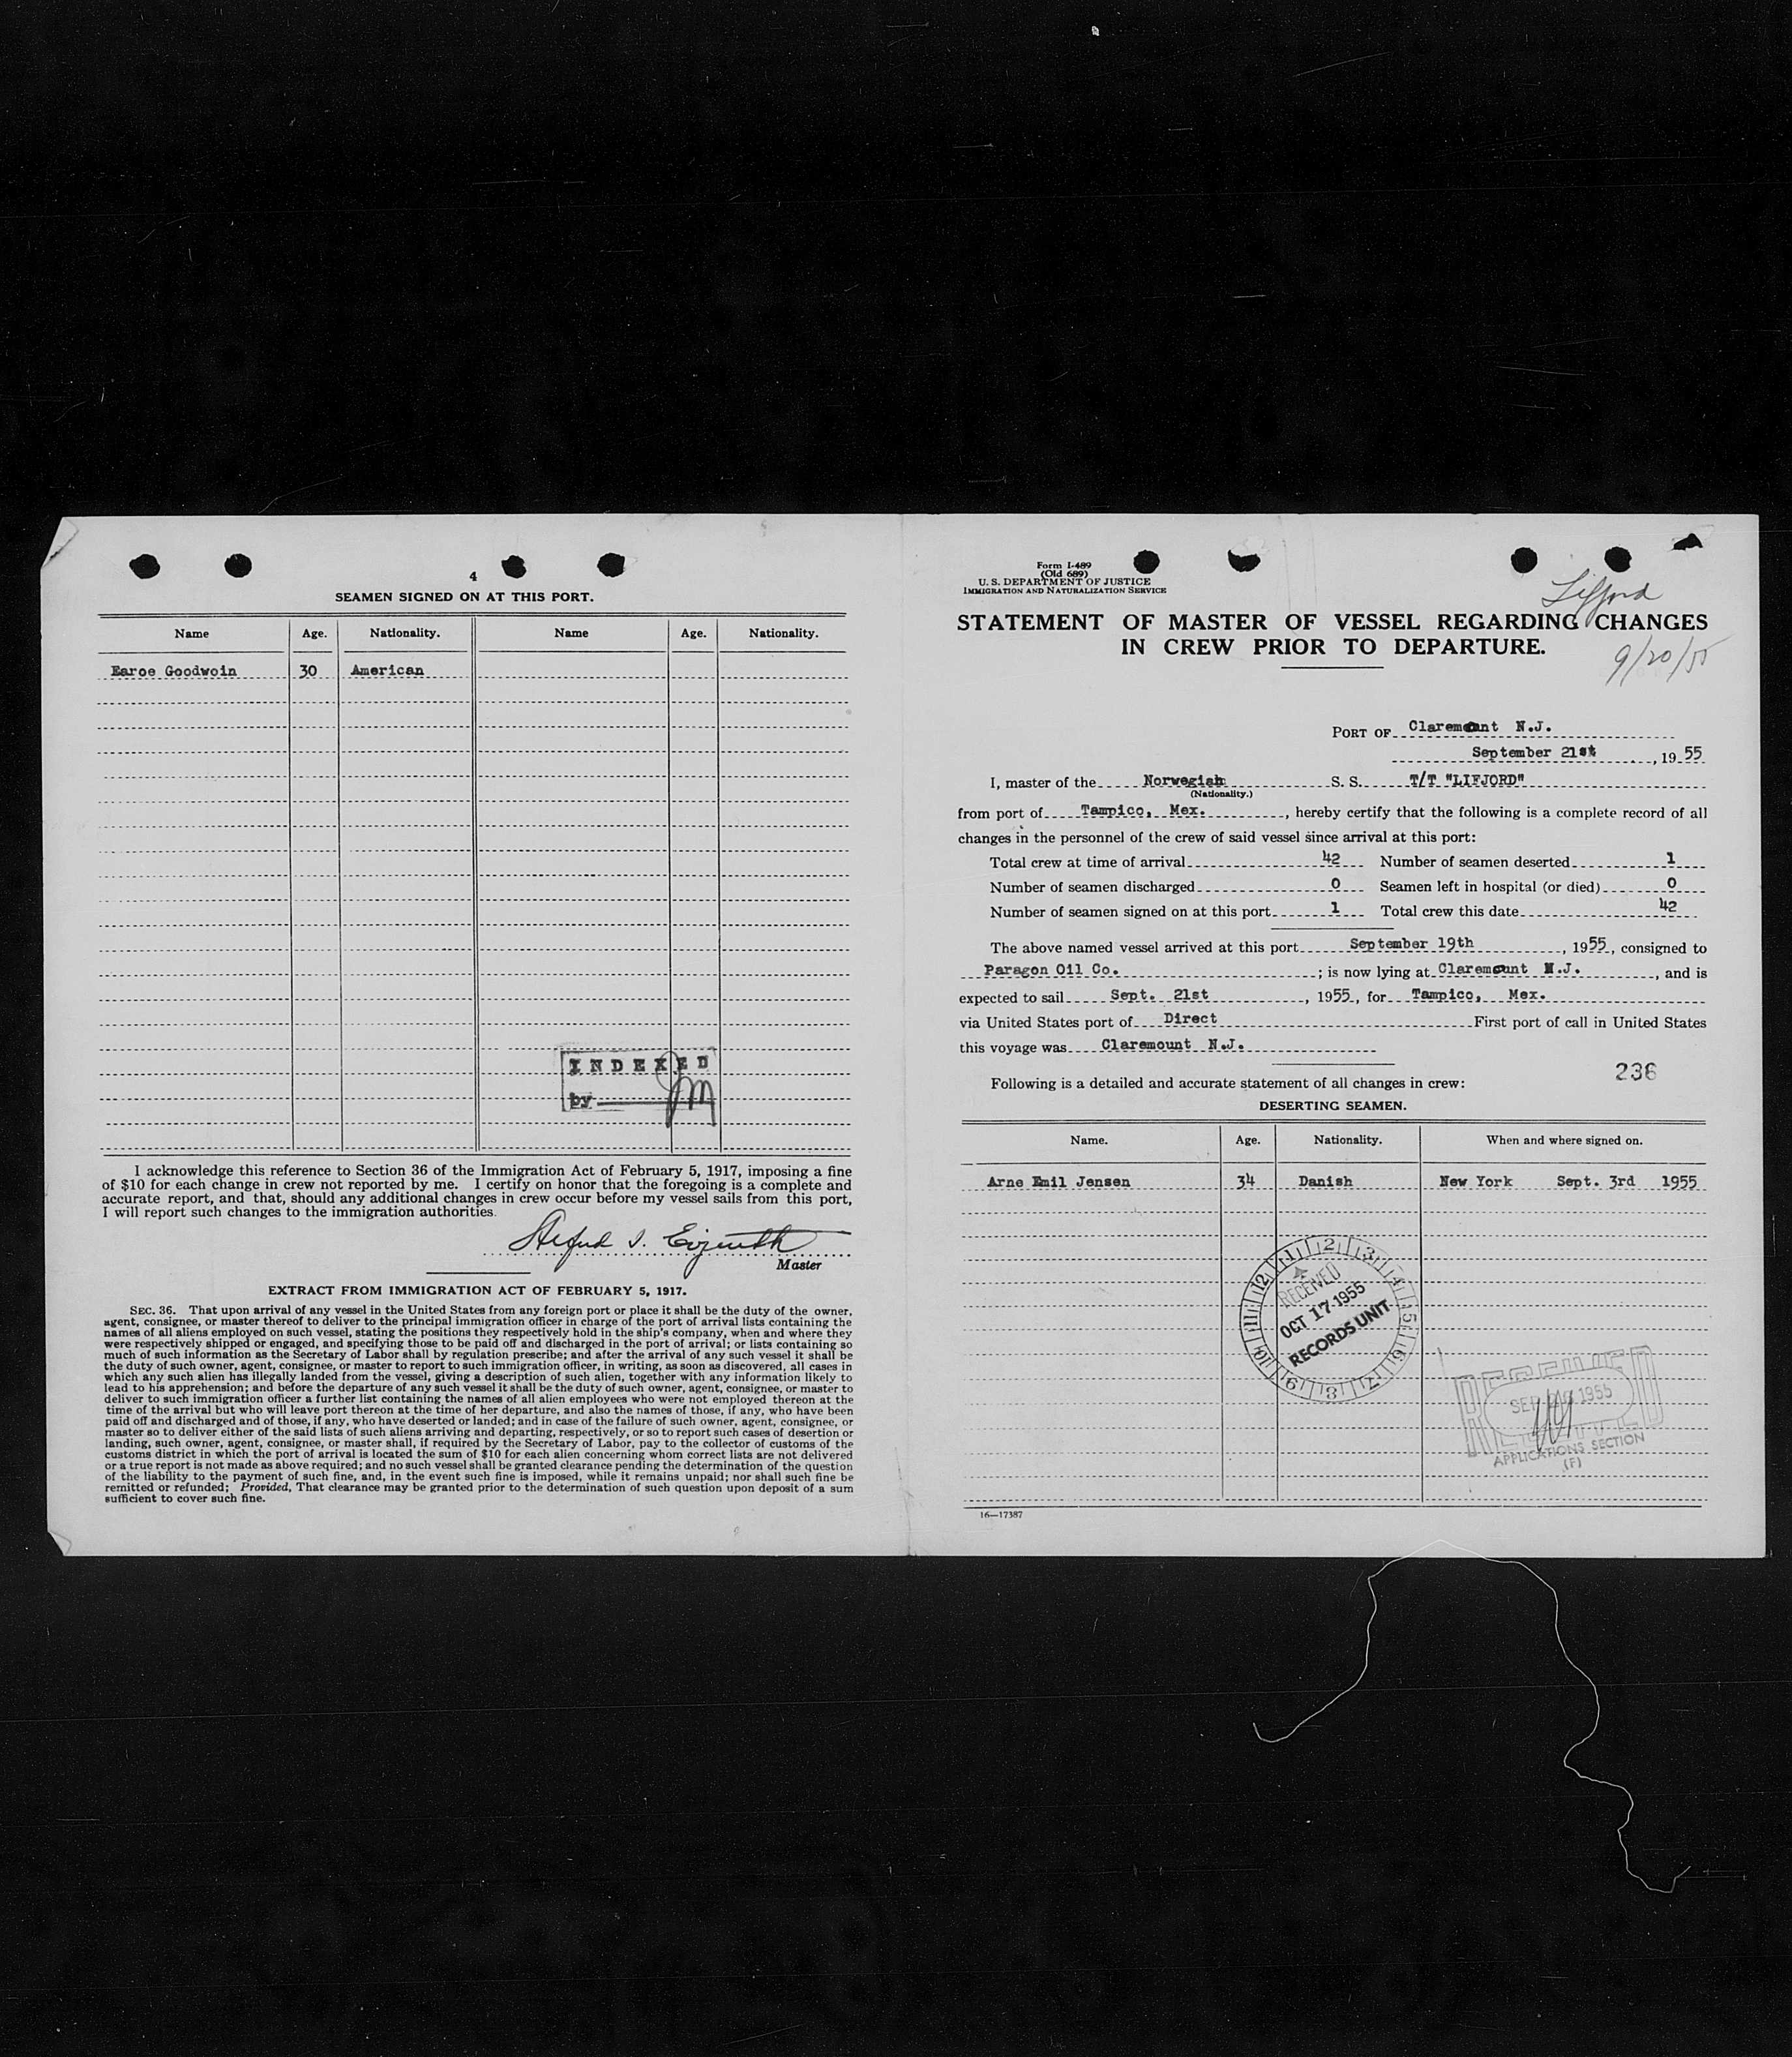 4
SEAMEN SIGNED ON AT THIS PORT.
Name Age. Nationality. Name Age. Nationality.
Earoe Goodwoin 30 American
INDEXED
by
I acknowledge this reference to Section 36 of the Immigration Act of February 5, 1917, imposing a fine
of $10 for each change in crew not reported by me. I certify on honor that the foregoing is a complete and
accurate report, and that, should any additional changes in crew occur before my vessel sails from this port,
I will report such changes to the immigration authorities.
Master
EXTRACT FROM IMMIGRATION ACT OF FEBRUARY 5, 1917.
SEC. 36. That upon arrival of any vessel in the United States from any foreign port or place it shall be the duty of the owner,
agent, consignee, or master thereof to deliver to the principal immigration officer in charge of the port of arrival lists containing the
names of all aliens employed on such vessel, stating the positions they respectively hold in the ship's company, when and where they
were respectively shipped or engaged, and specifying those to be paid off and discharged in the port of arrival; or lists containing so
much of such information as the Secretary of Labor shall by regulation prescribe; and after the arrival of any such vessel it shall be
the duty of such owner, agent, consignee, or master to report to such immigration officer, in writing, as soon as discovered, all cases in
which any such alien has illegally landed from the vessel, giving a description of such alien, together with any information likely to
lead to his apprehension; and before the departure of any such vessel it shall be the duty of such owner, agent, consignee, or master to
deliver to such immigration officer a further list containing the names of all alien employees who were not employed thereon at the
time of the arrival but who will leave port thereon at the time of her departure, and also the names of those, if any, who have been
paid off and discharged and of those, if any, who have deserted or landed; and in case of the failure of such owner, agent, consignee, or
master so to deliver either of the said lists of such aliens arriving and departing, respectively, or so to report such cases of desertion or
landing, such owner, agent, consignee, or master shall, if required by the Secretary of Labor, pay to the collector of customs of the
customs district in which the port of arrival is located the sum of $10 for each alien concerning whom correct lists are not delivered
or a true report is not made as above required; and no such vessel shall be granted clearance pending the determination of the question
of the liability to the payment of such fine, and, in the event such fine is imposed, while it remains unpaid; nor shall such fine be
remitted or refunded; Provided, That clearance may be granted prior to the determination of such question upon deposit of a sum
sufficient to cover such fine.
Form I-489
(Old 689)
U. S. DEPARTMENT OF JUSTICE
IMMIGRATION AND NATURALIZATION SERVICE
Lifjord
STATEMENT OF MASTER OF VESSEL REGARDING CHANGES
IN CREW PRIOR TO DEPARTURE.
9/20/55
PORT OF Claremount N.J.
September 21st, 1955
I, master of the Norwegian S. S. T/T "LIFJORD"
(Nationality.)
from port of Tampico, Mex., hereby certify that the following is a complete record of all
changes in the personnel of the crew of said vessel since arrival at this port:
Total crew at time of arrival 42 Number of seamen deserted 1
Number of seamen discharged 0 Seamen left in hospital (or died) 0
Number of seamen signed on at this port 1 Total crew this date 42
The above named vessel arrived at this port September 19th, 1955, consigned to
Paragon Oil Co.; is now lying at Claremount N.J., and is
expected to sail Sept. 21st, 1955, for Tampico, Mex.
via United States port of Direct First port of call in United States
this voyage was Claremount N.J.
236
Following is a detailed and accurate statement of all changes in crew:
DESERTING SEAMEN.
Name. Age. Nationality. When and where signed on.
Arne Emil Jensen 34 Danish New York Sept. 3rd 1955
1 2 3 4 5 6 7 8 9 10 11 12
RECEIVED
OCT 17 1955
RECORDS UNIT
RECEIVED
SEP 1955
APPLICATIONS SECTION
(F)
16—17387